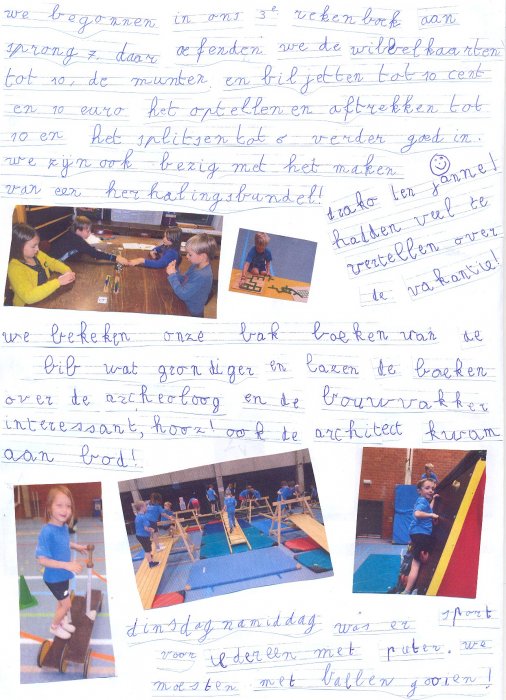 we begonnen in ons 3e rekenboek aan
sprong 7. daar oefenden we de wibbelkaarten
tot 10, de munten en biljetten tot 10 cent
en 10 euro het optellen en aftrekken tot
10 en het splitsen tot 6 verder goed in.
we zijn ook bezig met het maken
van een herhalingsbundel!
Len Janne!
hadden veel te
vertellen over
de vakantie!
we bekeken onze bak boeken van de
bib wat grondiger en lazen de boeken
over de archeoloog en de bouwvakker
interessant, hoor! ook de architect kwam
aan bod!
dinsdagnamiddag was er sport
voor iedereen met peter. we
moesten met ballen gooien!